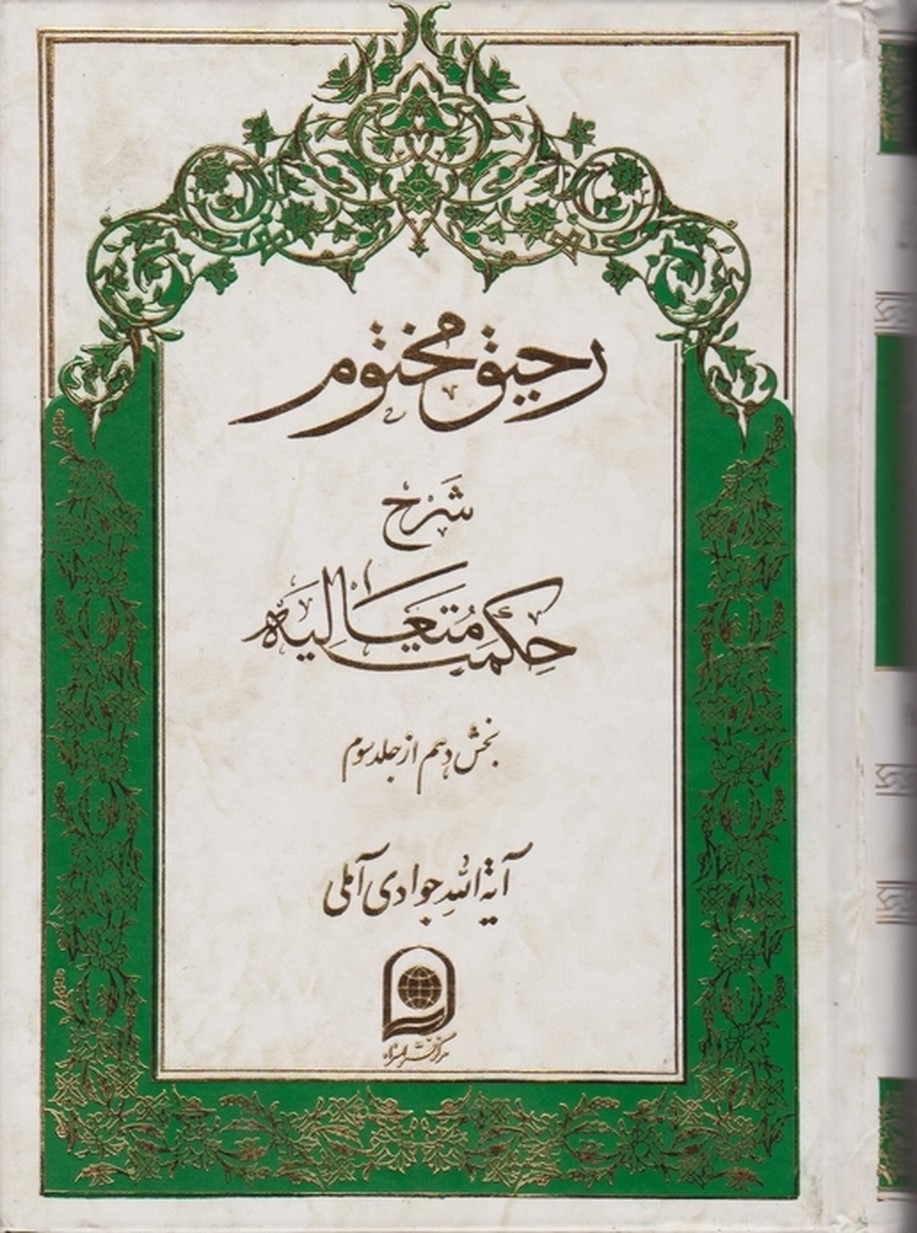 رحیق مختوم
شَرح
حکمت مُتَعَالیَه
بخش دهم از جلد سوم
آیة اللهِ جوادی آملی
مرکز نشر اسراء